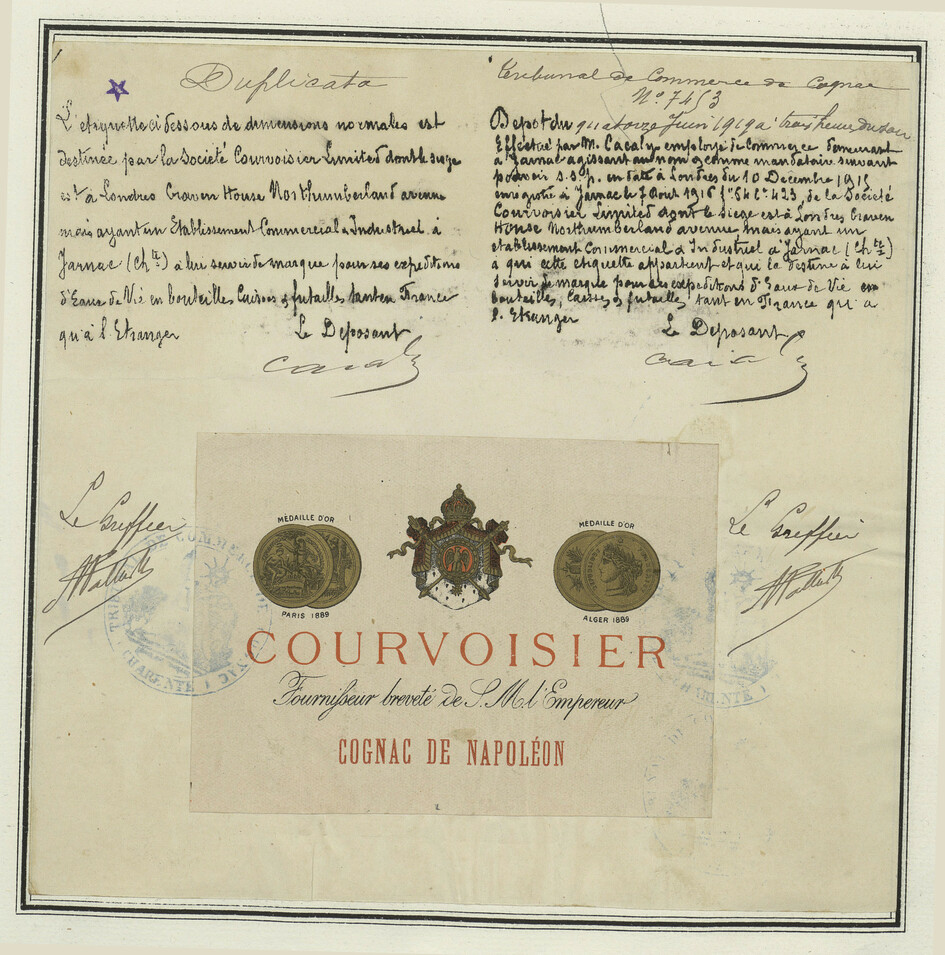 Duplicata
L'etiquette ci dessous de dimensions normales est
destinée par la Société Courvoisier Limited dont le siege
est à Londres Craven House Northumberland avenue
mais ayant un Etablissement Commercial & Industriel à
Jarnac (Chte) à lui servir de marque pour ses expeditions
d'Eaux de Vie en bouteilles Caisses & futailles tant en France
qu'à l'Etranger
Le Deposant
Tribunal de Commerce de Cognac
No. 7453
Depot du quatorze Juin 1919 à trois heures du soir
Effectué par M. Cacaly employé de Commerce demeurant
à Jarnac agissant au nom & comme mandataire suivant
pouvoir s.s.p. en date à Londres du 10 Décembre 1915
enregistré à Jarnac le 7 Aout 1916 fo 54 Co 423, de la Société
Courvoisier Limited dont le Siege est à Londres Craven
House Northumberland avenue, mais ayant un
etablissement Commercial & Industriel à Jarnac (Chte)
a qui cette etiquette appartient et qui la destine à lui
servir de marque pour ses expeditions d'Eaux de Vie en
bouteilles, Caisses & futailles tant en France qu'a
l'Etranger
Le Deposant
Le Greffier
Le Greffier
MÉDAILLE D'OR
PARIS 1889
MÉDAILLE D'OR
ALGER 1889
COURVOISIER
Fournisseur breveté de S. M. l'Empereur
COGNAC DE NAPOLÉON